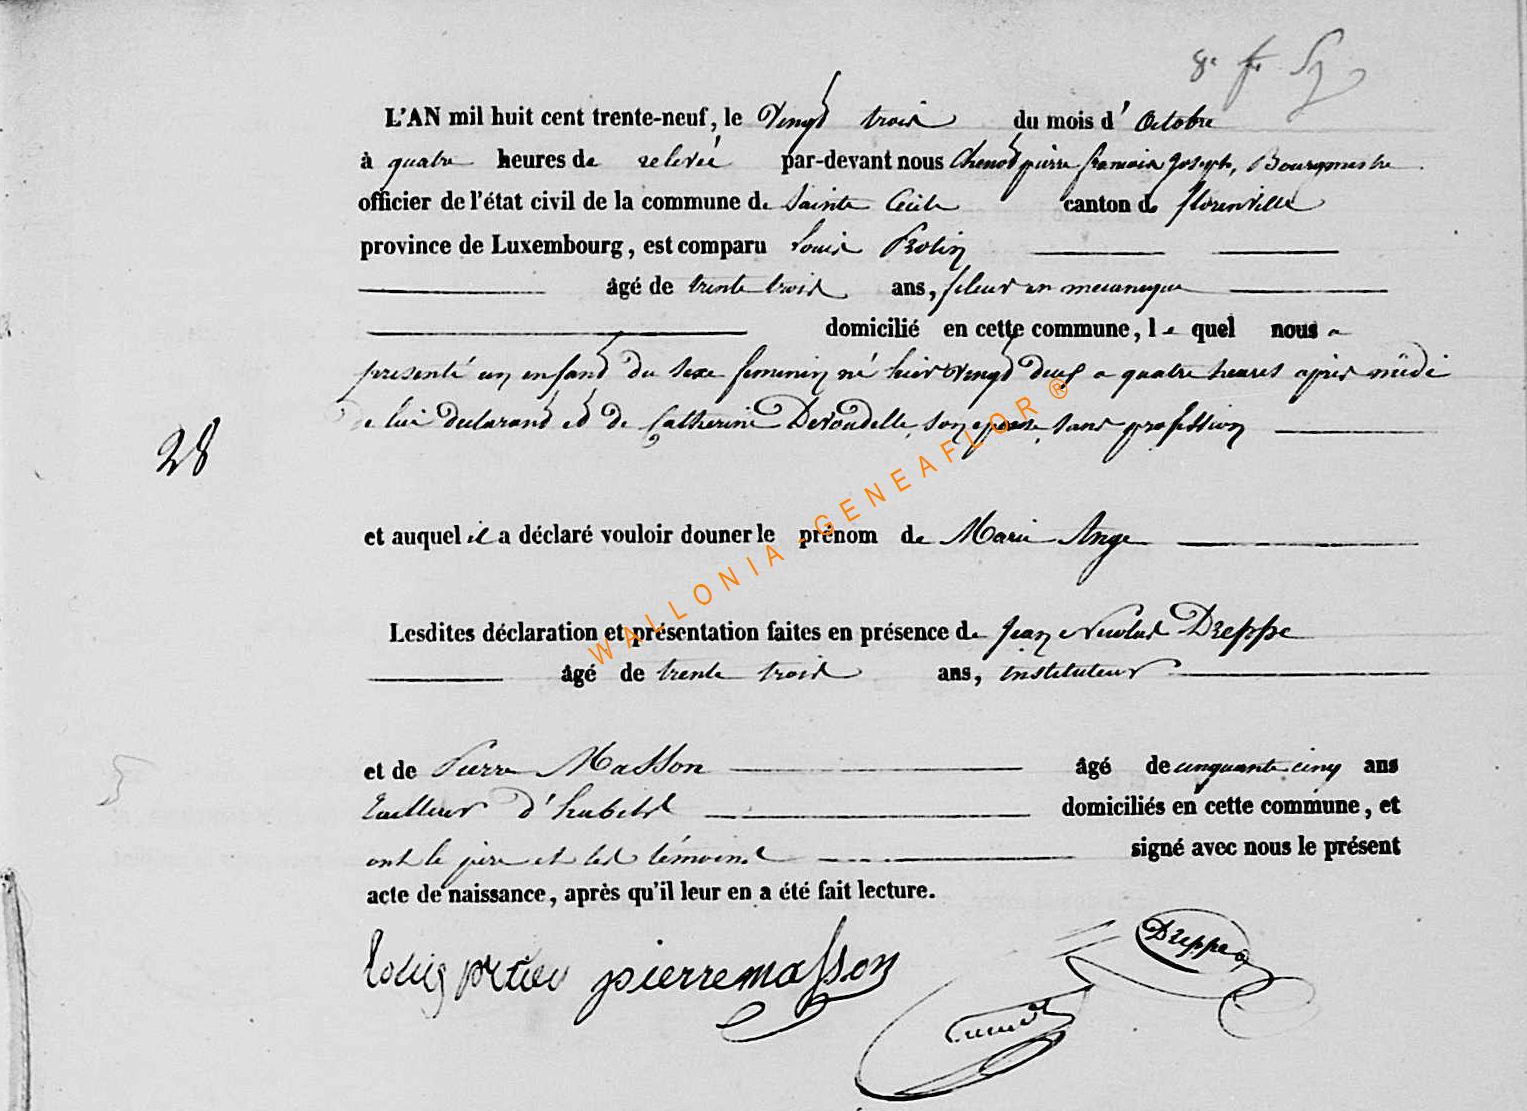 8e
L'AN mil huit cent trente-neuf, le Vingt trois du mois d' Octobre
à quatre heures de relevée par-devant nous Chenot pierre francois Joseph, Bourgmestre
officier de l'état civil de la commune de Sainte Cécile canton de florenville
province de Luxembourg, est comparu Louis
âgé de trente trois ans, fileur en mecanique
domicilié en cette commune, le quel nous a
presenté un enfant du sexe feminin né hier vingt deux a quatre heures après midi
de lui declarant et de Catherine Devoudelle, son epouse, sans profession
28
et auquel il a déclaré vouloir donner le prénom de Marie Ange
WALLONIA - GENEAFLOR ®
Lesdites déclaration et présentation faites en présence de Jean Nicolas Dreppe
âgé de trente trois ans, instituteur
et de Pierre Masson âgé de cinquante cinq ans
tailleur d'habits domiciliés en cette commune, et
ont le père et les témoins signé avec nous le présent
acte de naissance, après qu'il leur en a été fait lecture.
Louis pierre masson Dreppe